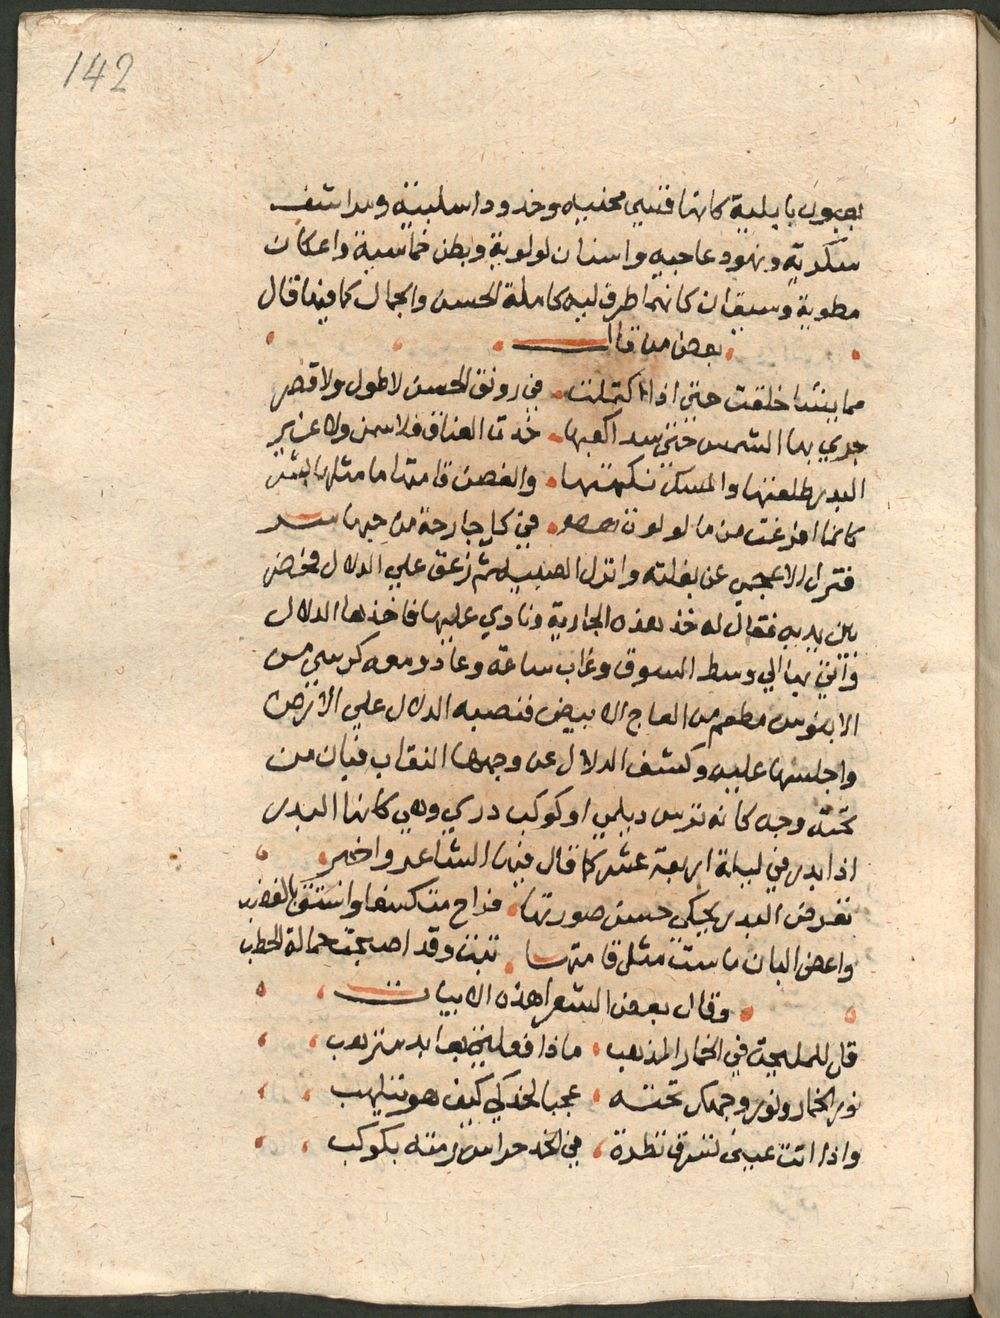 142
بعيون بابلية كانها قسي محنيه وخدود اسلينية ومراشف
سكرية ونهود عاجيه واسنان لولوية وبطن خماسية واعكان
مطوية وسيقان كانها اطراف ليه كاملة الحسن والجمال كما فيها قال
بعض من قال
مما بنتها خلقت حتي اذا اكتملت في رونق الحسن لا طول ولا قصر
جري بها الشمس حتي كعبها خدت العناق فلا سمن ولا غير
البدر طلعتها والمسك نكهتها والغصن قامتها ما مثلها البشر
كانما افرغت من ما لولوة في كل جارحة من حبها
فنزل الاعجمي عن بغلته وانزل الصبيه ثم زعق علي الدلال فحضر
بين يديه فقال له خذ هذه الجارية ونادي عليها فاخذها الدلال
واتي بها الي وسط السوق وغاب ساعة وعاد ومعه كرسي من
الابنوس مطعم من العاج الابيض فنصبه الدلال علي الارض
واجلسها عليه وكشف الدلال عن وجهها النقاب فبان من
تحته وجه كانه ترس ديلمي او كوكب دري وهي كانها البدر
اذا ابدر في ليلة اربعة عشر كما قال فيها الشاعر واخبر
تعرض البدر يحكي حسن صورتها فراح منكسفا وانشق بالغضب
واغصن البان ماست مثل قامتها تبت وقد اصبحت حمالة الحطب
وقال بعض الشعرا هذه الابيات
قل للمليحة في الخمار المذهب ماذا فعلتي بعابد مترهب
نور الخمار ونور وجهك تحته عجبا لخدكي كيف هو يتلهب
واذا اتت عيني لتسرق نظرة في الخد حراس رمته بكوكب